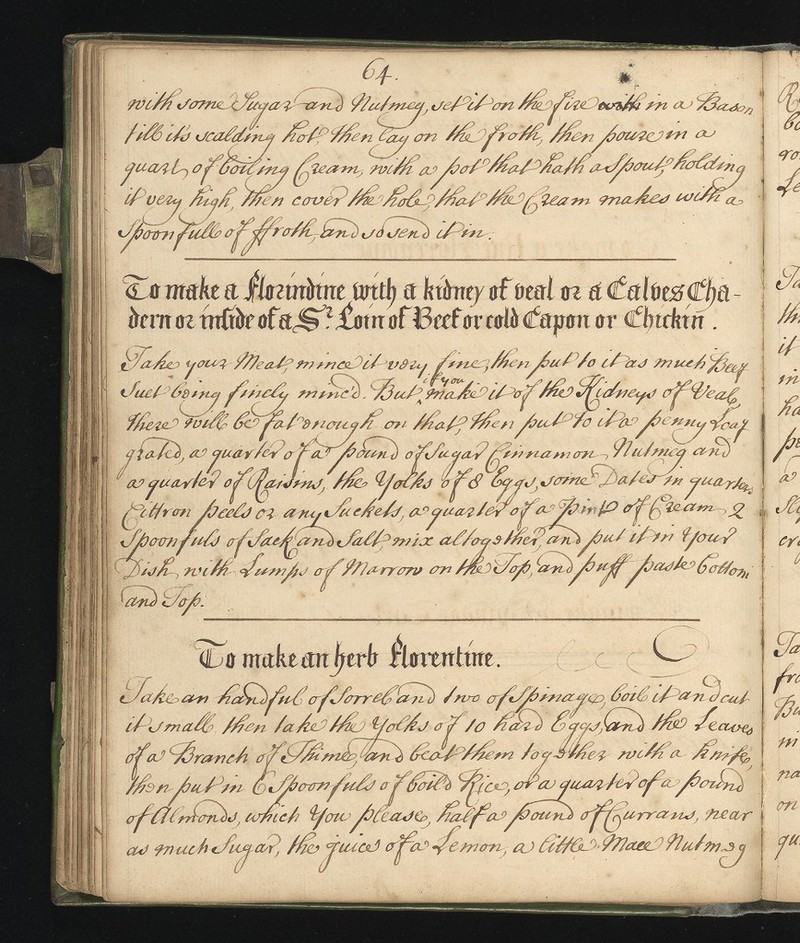 64.
with some Sugar and Nutmeg, set it on the fire with in a Bason
till it's scalding hot, then lay on the froth, then poure in a
quart of boiling Cream, with a pot that hath a Spout, holding
it very high, then cover the hole, that the Cream makes with a
Spoonfull of ffroth, and so send it in.
To make a Florindine with a kidney of veal or a Calves Cha-
dern or inside of a Sr. Loin of Beef or cold Capon or Chickin.
Take your Meat, mince it very fine, then put to it as much Beef
Suet being finely minc'd. But if you make it of the Kidneys of Veal,
there will be fat enough on that, then put to it a penny Loaf
grated, a quarter of a pound of Sugar Cinnamon, Nutmeg and
a quarter of Raisins, the Yolks of 8 Eggs, some Dates in quarters
Cittron peels or any Suckets, a quarter of a Pint of Cream, 2
Spoonfuls of Sack and Salt, mix altogether, and put it in Your
Dish, with Lumps of Marrow on the Top, and puff paste bottom
and Top.
To make an herb Florentine.
Take an handful of Sorrel and two of Spinage, boil it and cut
it small, then take the Yolks of 10 hard Eggs, and the Leaves
of a Branch of Thime, and beat them together with a knife,
then put in 6 Spoonfuls of boil'd Rice, or a quarter of a pound
of Almonds, which You please, half a pound of Currans, near
as much Sugar, the juice of a Lemon, a little Mace Nutmeg